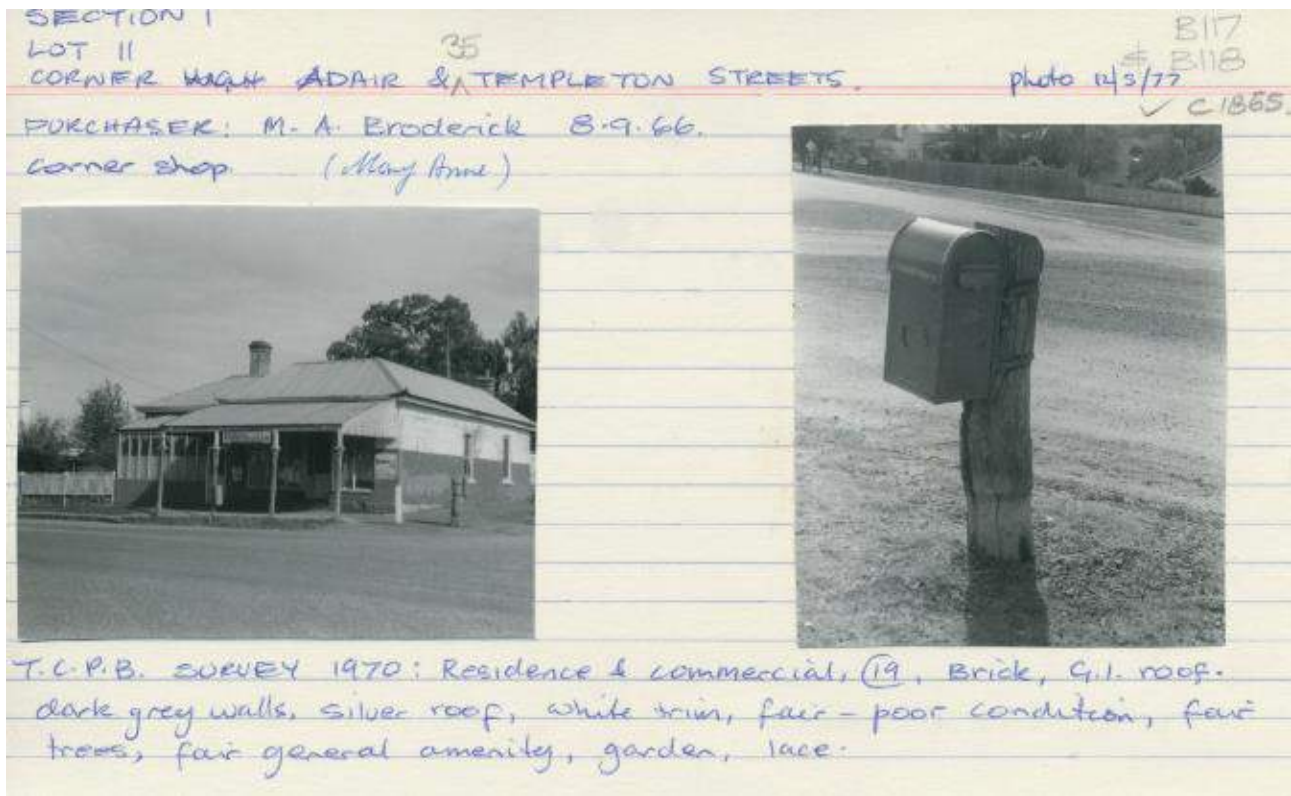 SECTION 1
B117
LOT 11
35
& B118
CORNER HIGH ADAIR & TEMPLETON STREETS.
photo 12/5/77
✓ C1865.
PURCHASER: M. A. Broderick 8.9.66.
corner shop. (Mary Anne)
T.C.P.B. SURVEY 1970: Residence & commercial, 19, Brick, G.I. roof.
dark grey walls, silver roof, white trim, fair - poor condition, fair
trees, fair general amenity, garden, lace.